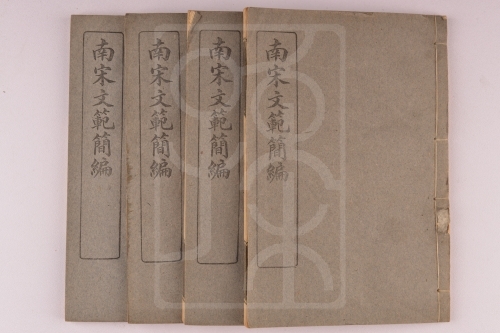 南宋文範簡編
南宋文範簡編
南宋文範簡編
南宋文範簡編